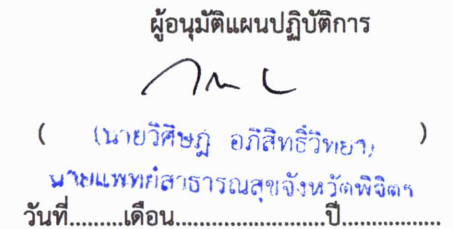 ผู้อนุมัติแผนปฏิบัติการ
( (นายวิศิษฎ์ อภิสิทธิ์วิทยา) )
นายแพทย์สาธารณสุขจังหวัดพิจิตร
วันที่.........เดือน..........................ปี.................